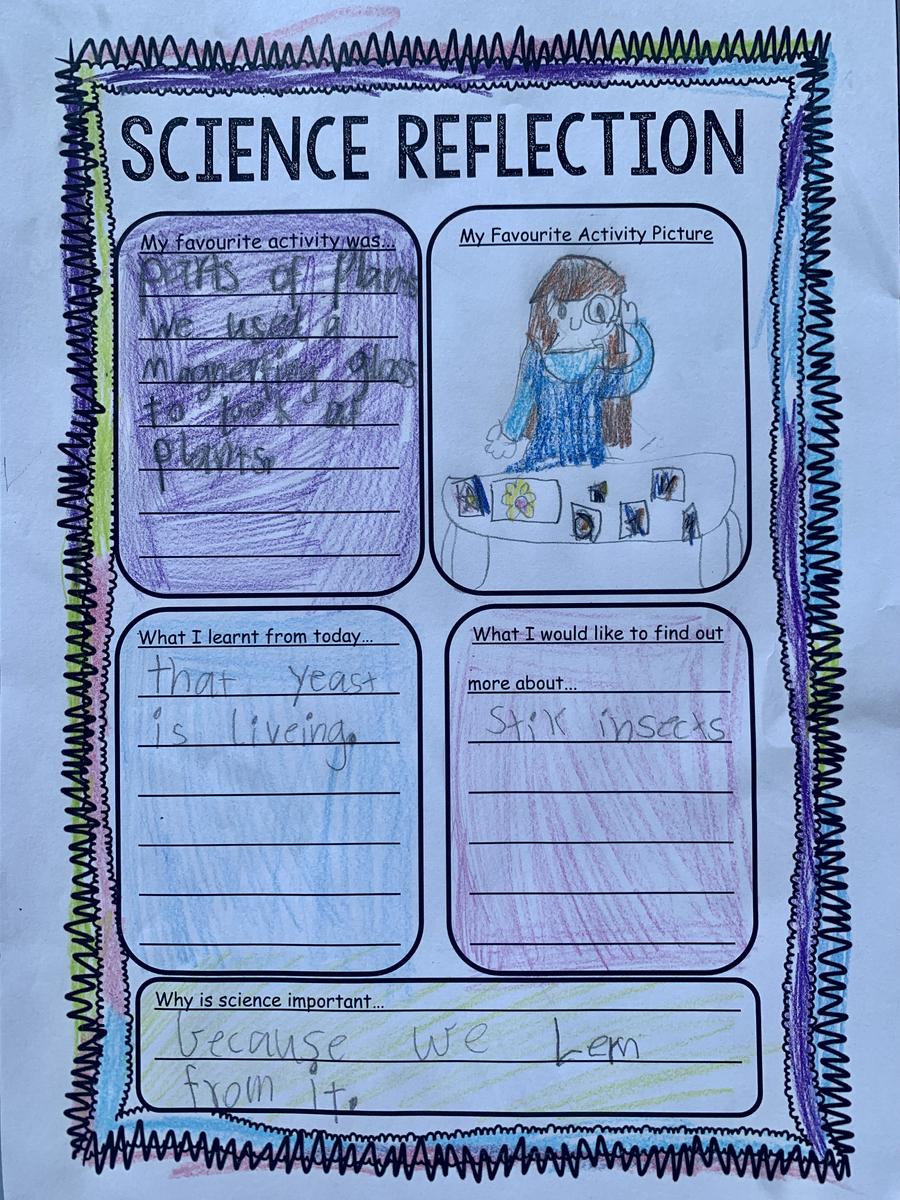 SCIENCE REFLECTION
My favourite activity was...
parts of plants
we used a
magnerting glass
to look at
plants.
My Favourite Activity Picture
What I learnt from today...
that yeast
is liveing.
What I would like to find out
more about...
Stik insects
Why is science important...
because we Lern
from it.